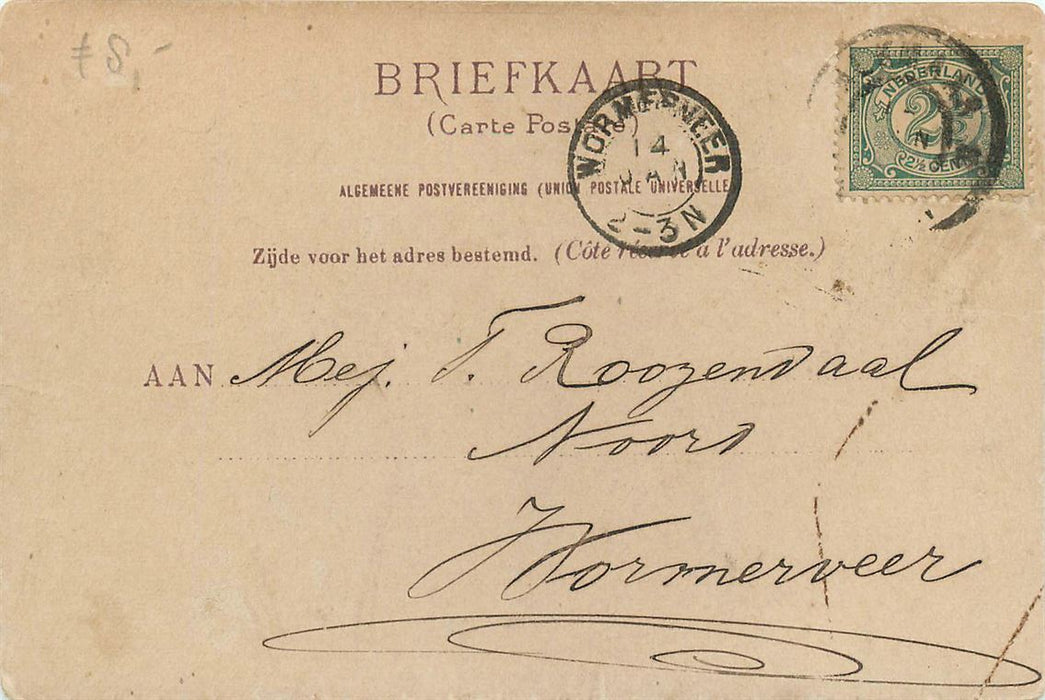 BRIEFKAART
(Carte Postale)
ALGEMEENE POSTVEREENIGING (UNION POSTALE UNIVERSELLE)
Zijde voor het adres bestemd. (Côté réservé à l'adresse.)
WORMERVEER
14
JAN
2-3N
NEDERLAND
2½
2½ CENT
AAN Mej. T. Roozendaal
Noord
Wormerveer